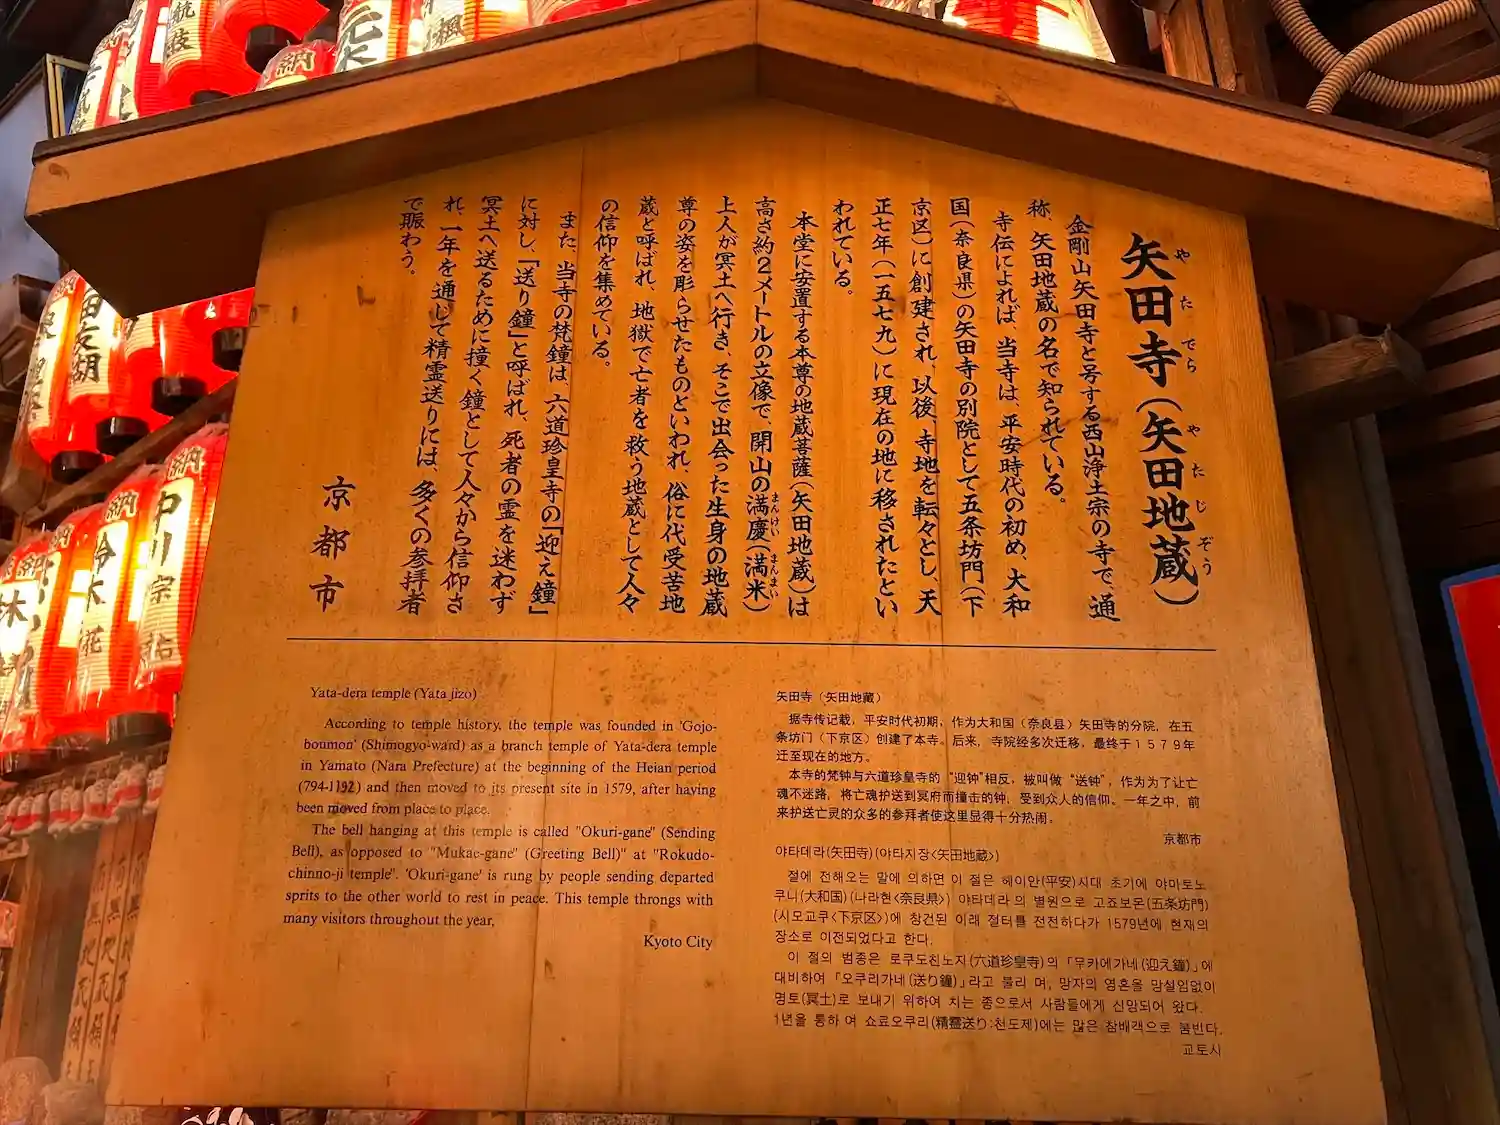 矢田寺（矢田地蔵）
やたでら
やたじぞう
金剛山矢田寺と号する西山浄土宗の寺で、通
称、矢田地蔵の名で知られている。
寺伝によれば、当寺は、平安時代の初め、大和
国（奈良県）の矢田寺の別院として五条坊門（下
京区）に創建され、以後、寺地を転々とし、天
正七年（一五七九）に現在の地に移されたとい
われている。
本堂に安置する本尊の地蔵菩薩（矢田地蔵）は
高さ約2メートルの立像で、開山の満慶（満米）
まんけい
まんまい
上人が冥土へ行き、そこで出会った生身の地蔵
尊の姿を彫らせたものといわれ、俗に代受苦地
蔵と呼ばれ、地獄で亡者を救う地蔵として人々
の信仰を集めている。
また、当寺の梵鐘は、六道珍皇寺の「迎え鐘」
に対し、「送り鐘」と呼ばれ、死者の霊を迷わず
冥土へ送るために撞く鐘として人々から信仰さ
れ、一年を通して精霊送りには、多くの参拝者
で賑わう。
京都市
Yata-dera temple (Yata jizo)
According to temple history, the temple was founded in 'Gojo-
boumon' (Shimogyo-ward) as a branch temple of Yata-dera temple
in Yamato (Nara Prefecture) at the beginning of the Heian period
(794-1192) and then moved to its present site in 1579, after having
been moved from place to place.
The bell hanging at this temple is called "Okuri-gane" (Sending
Bell), as opposed to "Mukae-gane" (Greeting Bell)" at "Rokudo-
chinno-ji temple". 'Okuri-gane' is rung by people sending departed
sprits to the other world to rest in peace. This temple throngs with
many visitors throughout the year,
Kyoto City
矢田寺（矢田地藏）
据寺传记载，平安时代初期，作为大和国（奈良县）矢田寺的分院，在五
条坊门（下京区）创建了本寺。后来，寺院经多次迁移，最终于１５７９年
迁至现在的地方。
本寺的梵钟与六道珍皇寺的“迎钟”相反，被叫做“送钟”，作为为了让亡
魂不迷路，将亡魂护送到冥府而撞击的钟，受到众人的信仰。一年之中，前
来护送亡灵的众多的参拜者使这里显得十分热闹。
京都市
야타데라(矢田寺)(야타지장<矢田地蔵>)
절에 전해오는 말에 의하면 이 절은 헤이안(平安)시대 초기에 야마토노
쿠니(大和国)(나라현<奈良県>) 야타데라의 별원으로 고죠보몬(五条坊門)
(시모교쿠<下京区>)에 창건된 이래 절터를 전전하다가 1579년에 현재의
장소로 이전되었다고 한다.
이 절의 범종은 로쿠도친노지(六道珍皇寺)의 「무카에가네(迎え鐘)」에
대비하여 「오쿠리가네(送り鐘)」라고 불리 며, 망자의 영혼을 망설임없이
명토(冥土)로 보내기 위하여 치는 종으로서 사람들에게 신앙되어 왔다.
1년을 통하 여 쇼료오쿠리(精霊送り:천도제)에는 많은 참배객으로 붐빈다.
교토시
納
鈴木
花
納
中川
宗